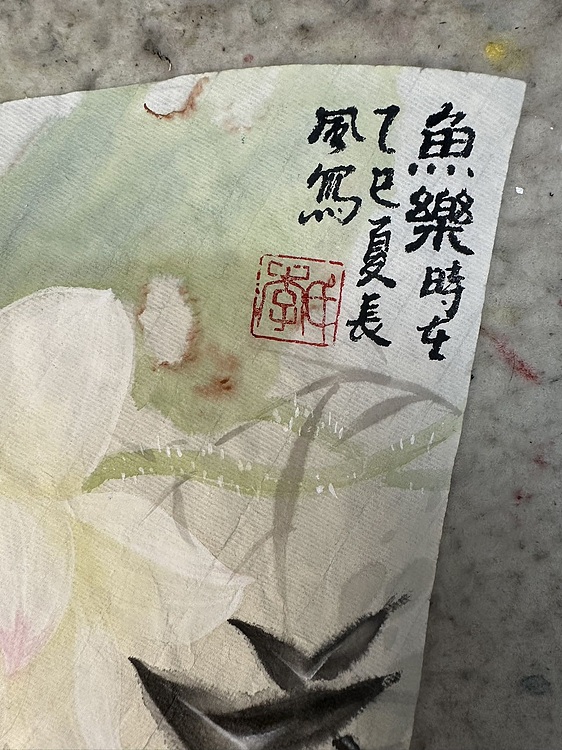 魚樂時在
乙巳夏長
風寫